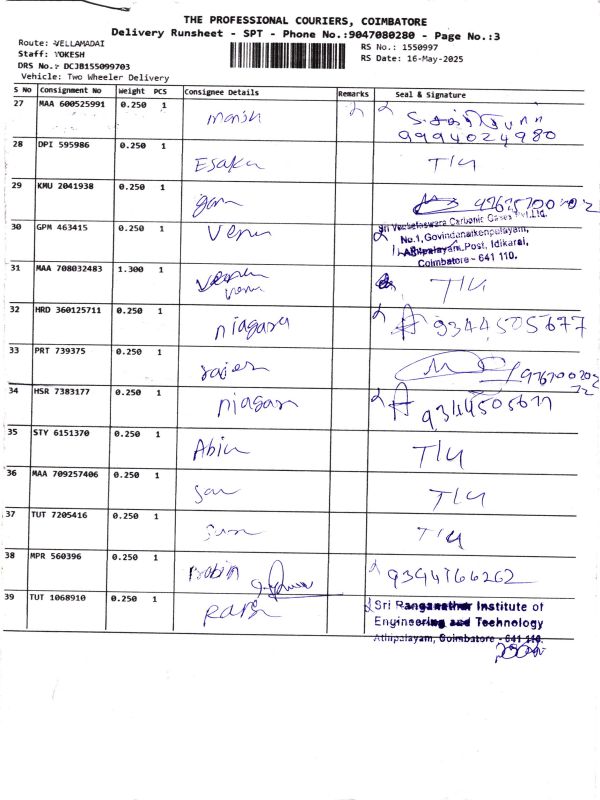 THE PROFESSIONAL COURIERS, COIMBATORE
Delivery Runsheet - SPT - Phone No.:9047080280 - Page No.:3
Route: VELLAMADAI
RS No.: 1550997
Staff: YOKESH
RS Date: 16-May-2025
DRS No.: DCJB155099703
Vehicle: Two Wheeler Delivery
S No Consignment No Weight PCS Consignee Details Remarks Seal & Signature
27 MAA 600525991 0.250 1
9994024980
28 DPI 595986 0.250 1 Esaku T/4
29 KMU 2041938 0.250 1
30 GPM 463415 0.250 1 Venu
Sri Venkateswara Carbonic Gases Pvt.Ltd.
No.1, Govindanaikenpalayam,
Athipalayam Post, Idikarai,
Coimbatore - 641 110.
31 MAA 708032483 1.300 1 T/4
32 HRD 360125711 0.250 1 niagara 9344505677
33 PRT 739375 0.250 1
34 HSR 7383177 0.250 1 niagara
35 STY 6151370 0.250 1 Abin T/4
36 MAA 709257406 0.250 1 T/4
37 TUT 7205416 0.250 1 T/4
38 MPR 560396 0.250 1 Robin
39 TUT 1068910 0.250 1
Sri Ranganathar Institute of
Engineering and Technology
Athipalayam, Coimbatore - 641 110.